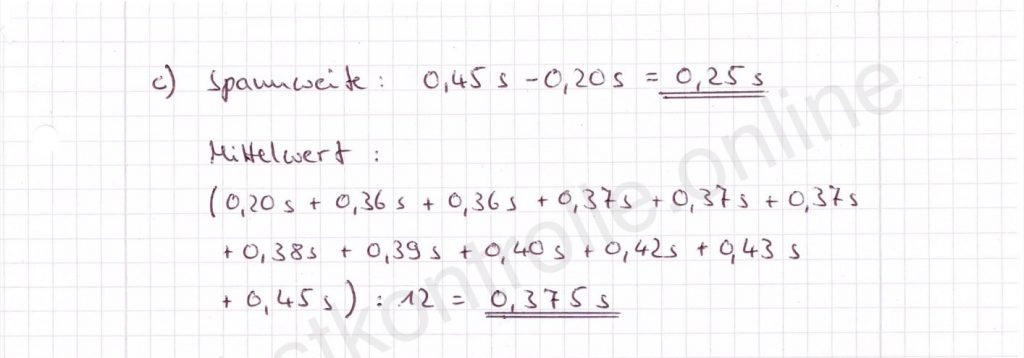 c) Spannweite: 0,45 s - 0,20 s = 0,25 s
Mittelwert:
(0,20 s + 0,36 s + 0,36 s + 0,37 s + 0,37 s + 0,37 s
+ 0,38 s + 0,39 s + 0,40 s + 0,42 s + 0,43 s
+ 0,45 s) : 12 = 0,375 s
stkontrolle.online